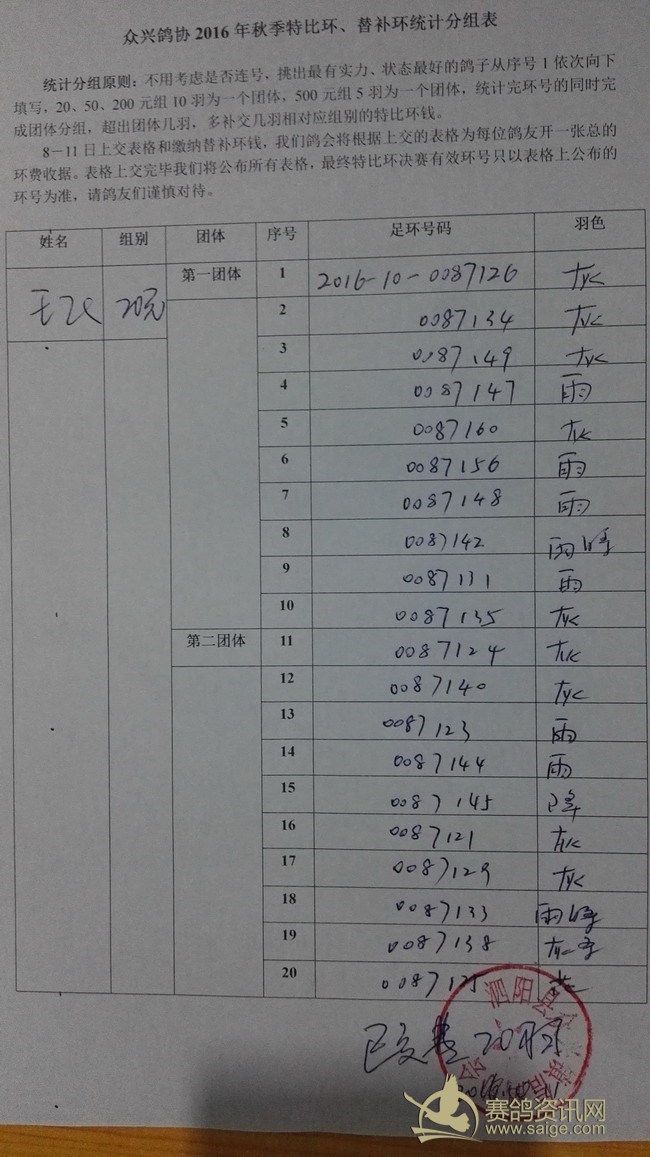 众兴鸽协 2016 年秋季特比环、替补环统计分组表
统计分组原则：不用考虑是否连号，挑出最有实力、状态最好的鸽子从序号 1 依次向下
填写，20、50、200 元组 10 羽为一个团体，500 元组 5 羽为一个团体，统计完环号的同时完
成团体分组，超出团体几羽，多补交几羽相对应组别的特比环钱。
8－11 日上交表格和缴纳替补环钱，我们鸽会将根据上交的表格为每位鸽友开一张总的
环费收据。表格上交完毕我们将公布所有表格，最终特比环决赛有效环号只以表格上公布的
环号为准，请鸽友们谨慎对待。
姓名 组别 团体 序号 足环号码 羽色
王飞 20元 第一团体 1 2016-10-0087126 灰
2 0087134 灰
3 0087149 灰
4 0087147 雨
5 0087160 灰
6 0087156 雨
7 0087148 雨
8 0087142 雨
9 0087131 雨
10 0087135 灰
第二团体 11 0087124 灰
12 0087140 灰
13 0087123 雨
14 0087144 雨
15 0087145 降
16 0087121 灰
17 0087129 灰
18 0087133 雨
19 0087138 灰
20 0087125
已交 20羽
泗阳县众
赛鸽资讯网
www.saige.com